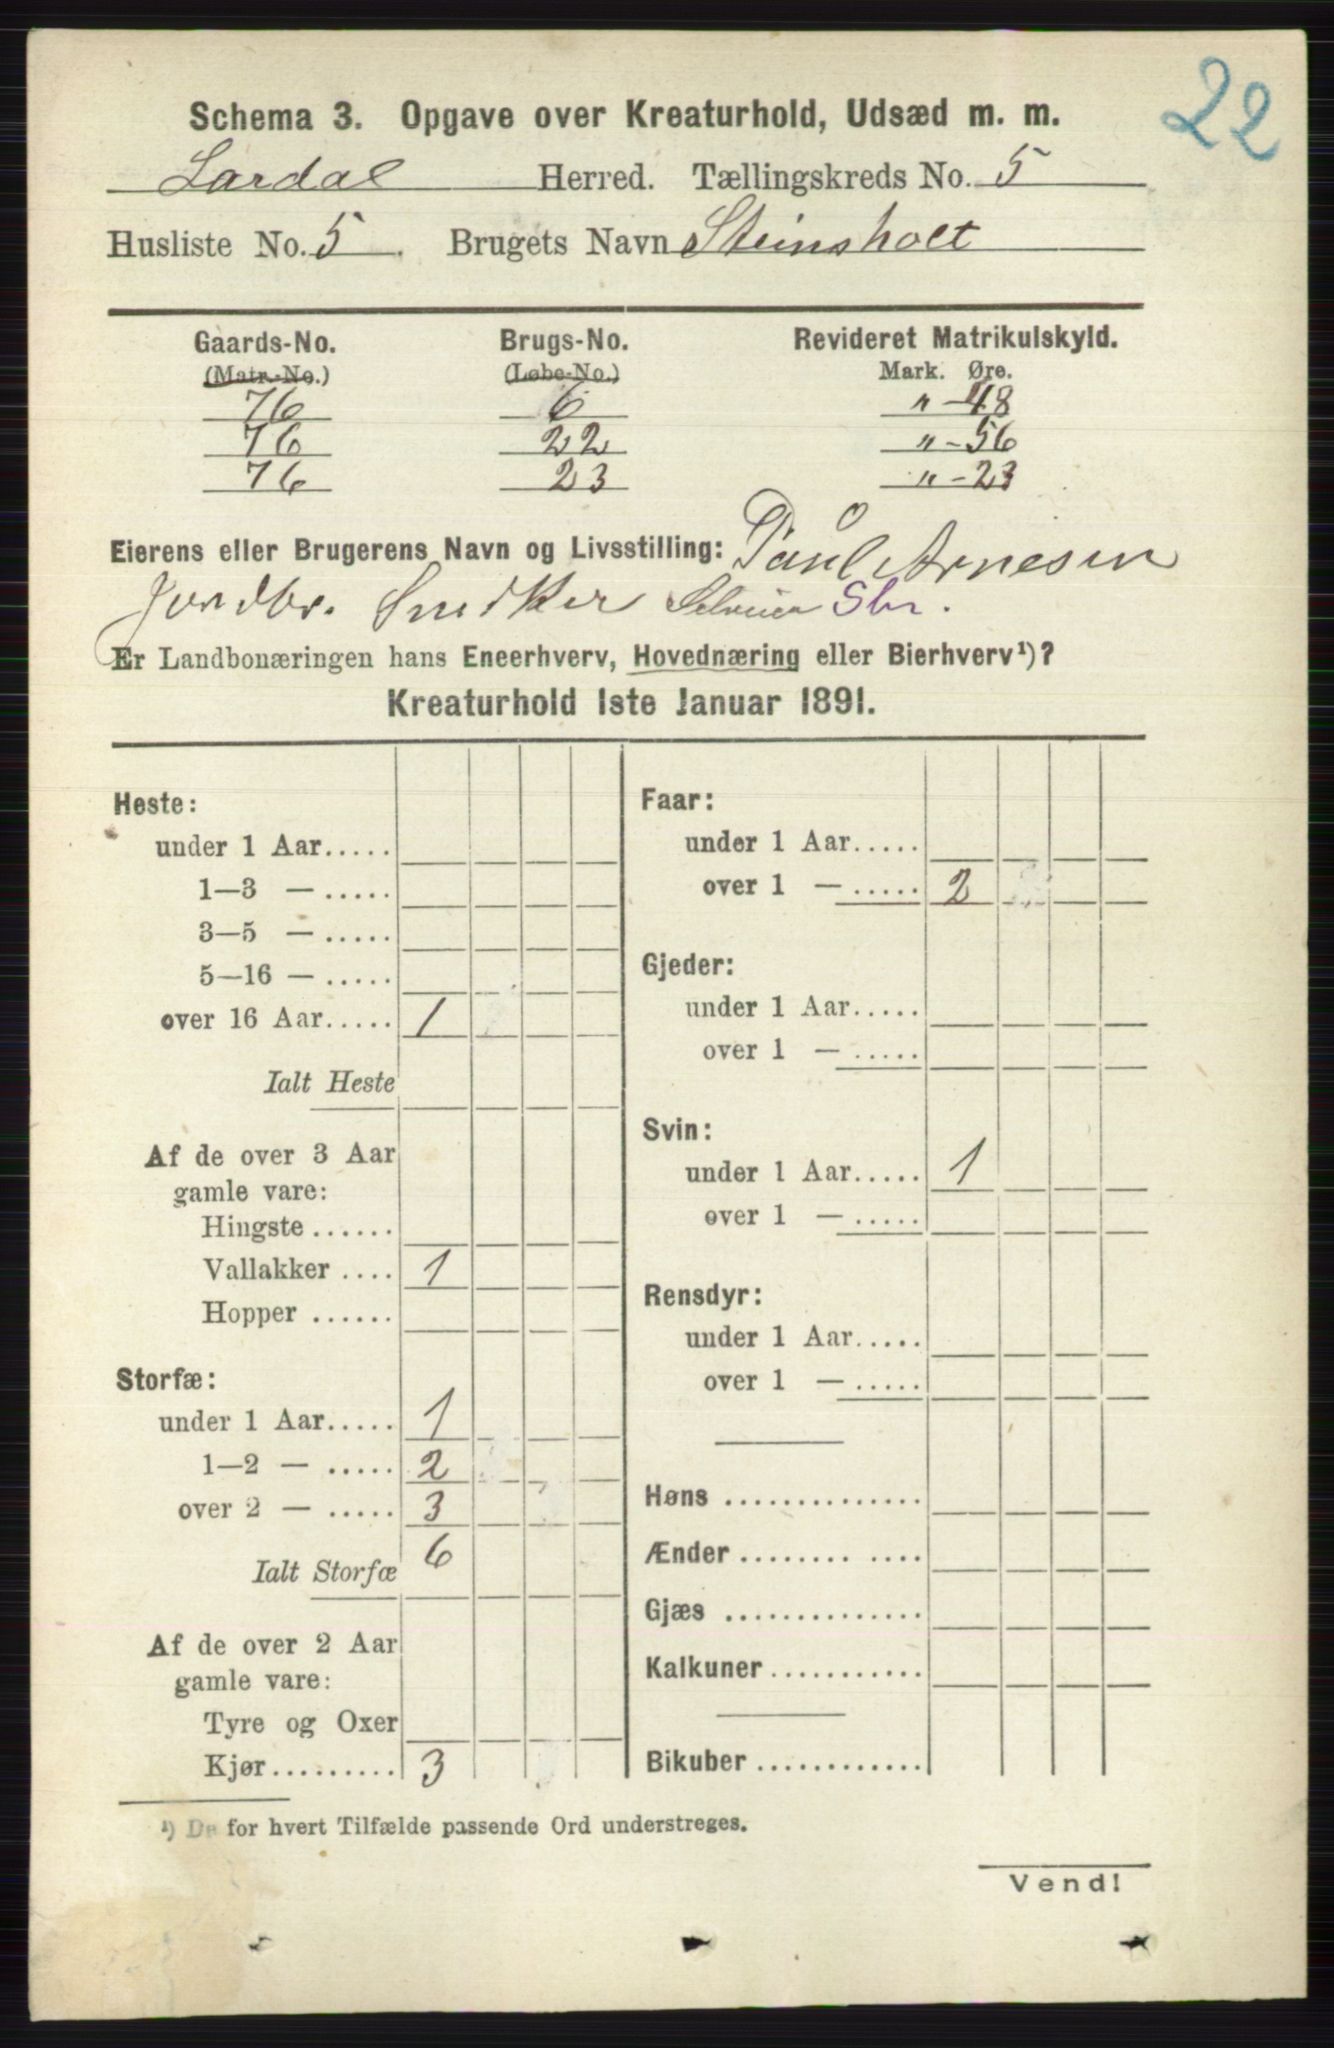 22
Schema 3. Opgave over Kreaturhold, Udsæd m. m.
Lardal Herred. Tællingskreds No. 5
Husliste No. 5. Brugets Navn Steinsholt
Gaards-No. Brugs-No. Revideret Matrikulskyld.
(Matr.-No.) (Løbe-No.) Mark. Øre.
76 6 " - 48
76 22 " - 56
76 23 " - 23
Eierens eller Brugerens Navn og Livsstilling: Paul Arnesen
Jordbr. Snedker Selveier Sbr.
Er Landbonæringen hans Eneerhverv, Hovednæring eller Bierhverv¹)?
Kreaturhold 1ste Januar 1891.
Heste:
under 1 Aar.....
1—3 — .....
3—5 — .....
5—16 — .....
over 16 Aar..... 1
Ialt Heste
Af de over 3 Aar
gamle vare:
Hingste ......
Vallakker .... 1
Hopper ......
Storfæ:
under 1 Aar..... 1
1—2 — ..... 2
over 2 — ..... 3
Ialt Storfæ 6
Af de over 2 Aar
gamle vare:
Tyre og Oxer
Kjør......... 3
Faar:
under 1 Aar.....
over 1 — ..... 2
Gjeder:
under 1 Aar.....
over 1 — .....
Svin:
under 1 Aar..... 1
over 1 — .....
Rensdyr:
under 1 Aar.....
over 1 — .....
Høns ..............
Ænder........ ....
Gjæs ..............
Kalkuner...........
Bikuber ............
¹) De for hvert Tilfælde passende Ord understreges.
Vend!